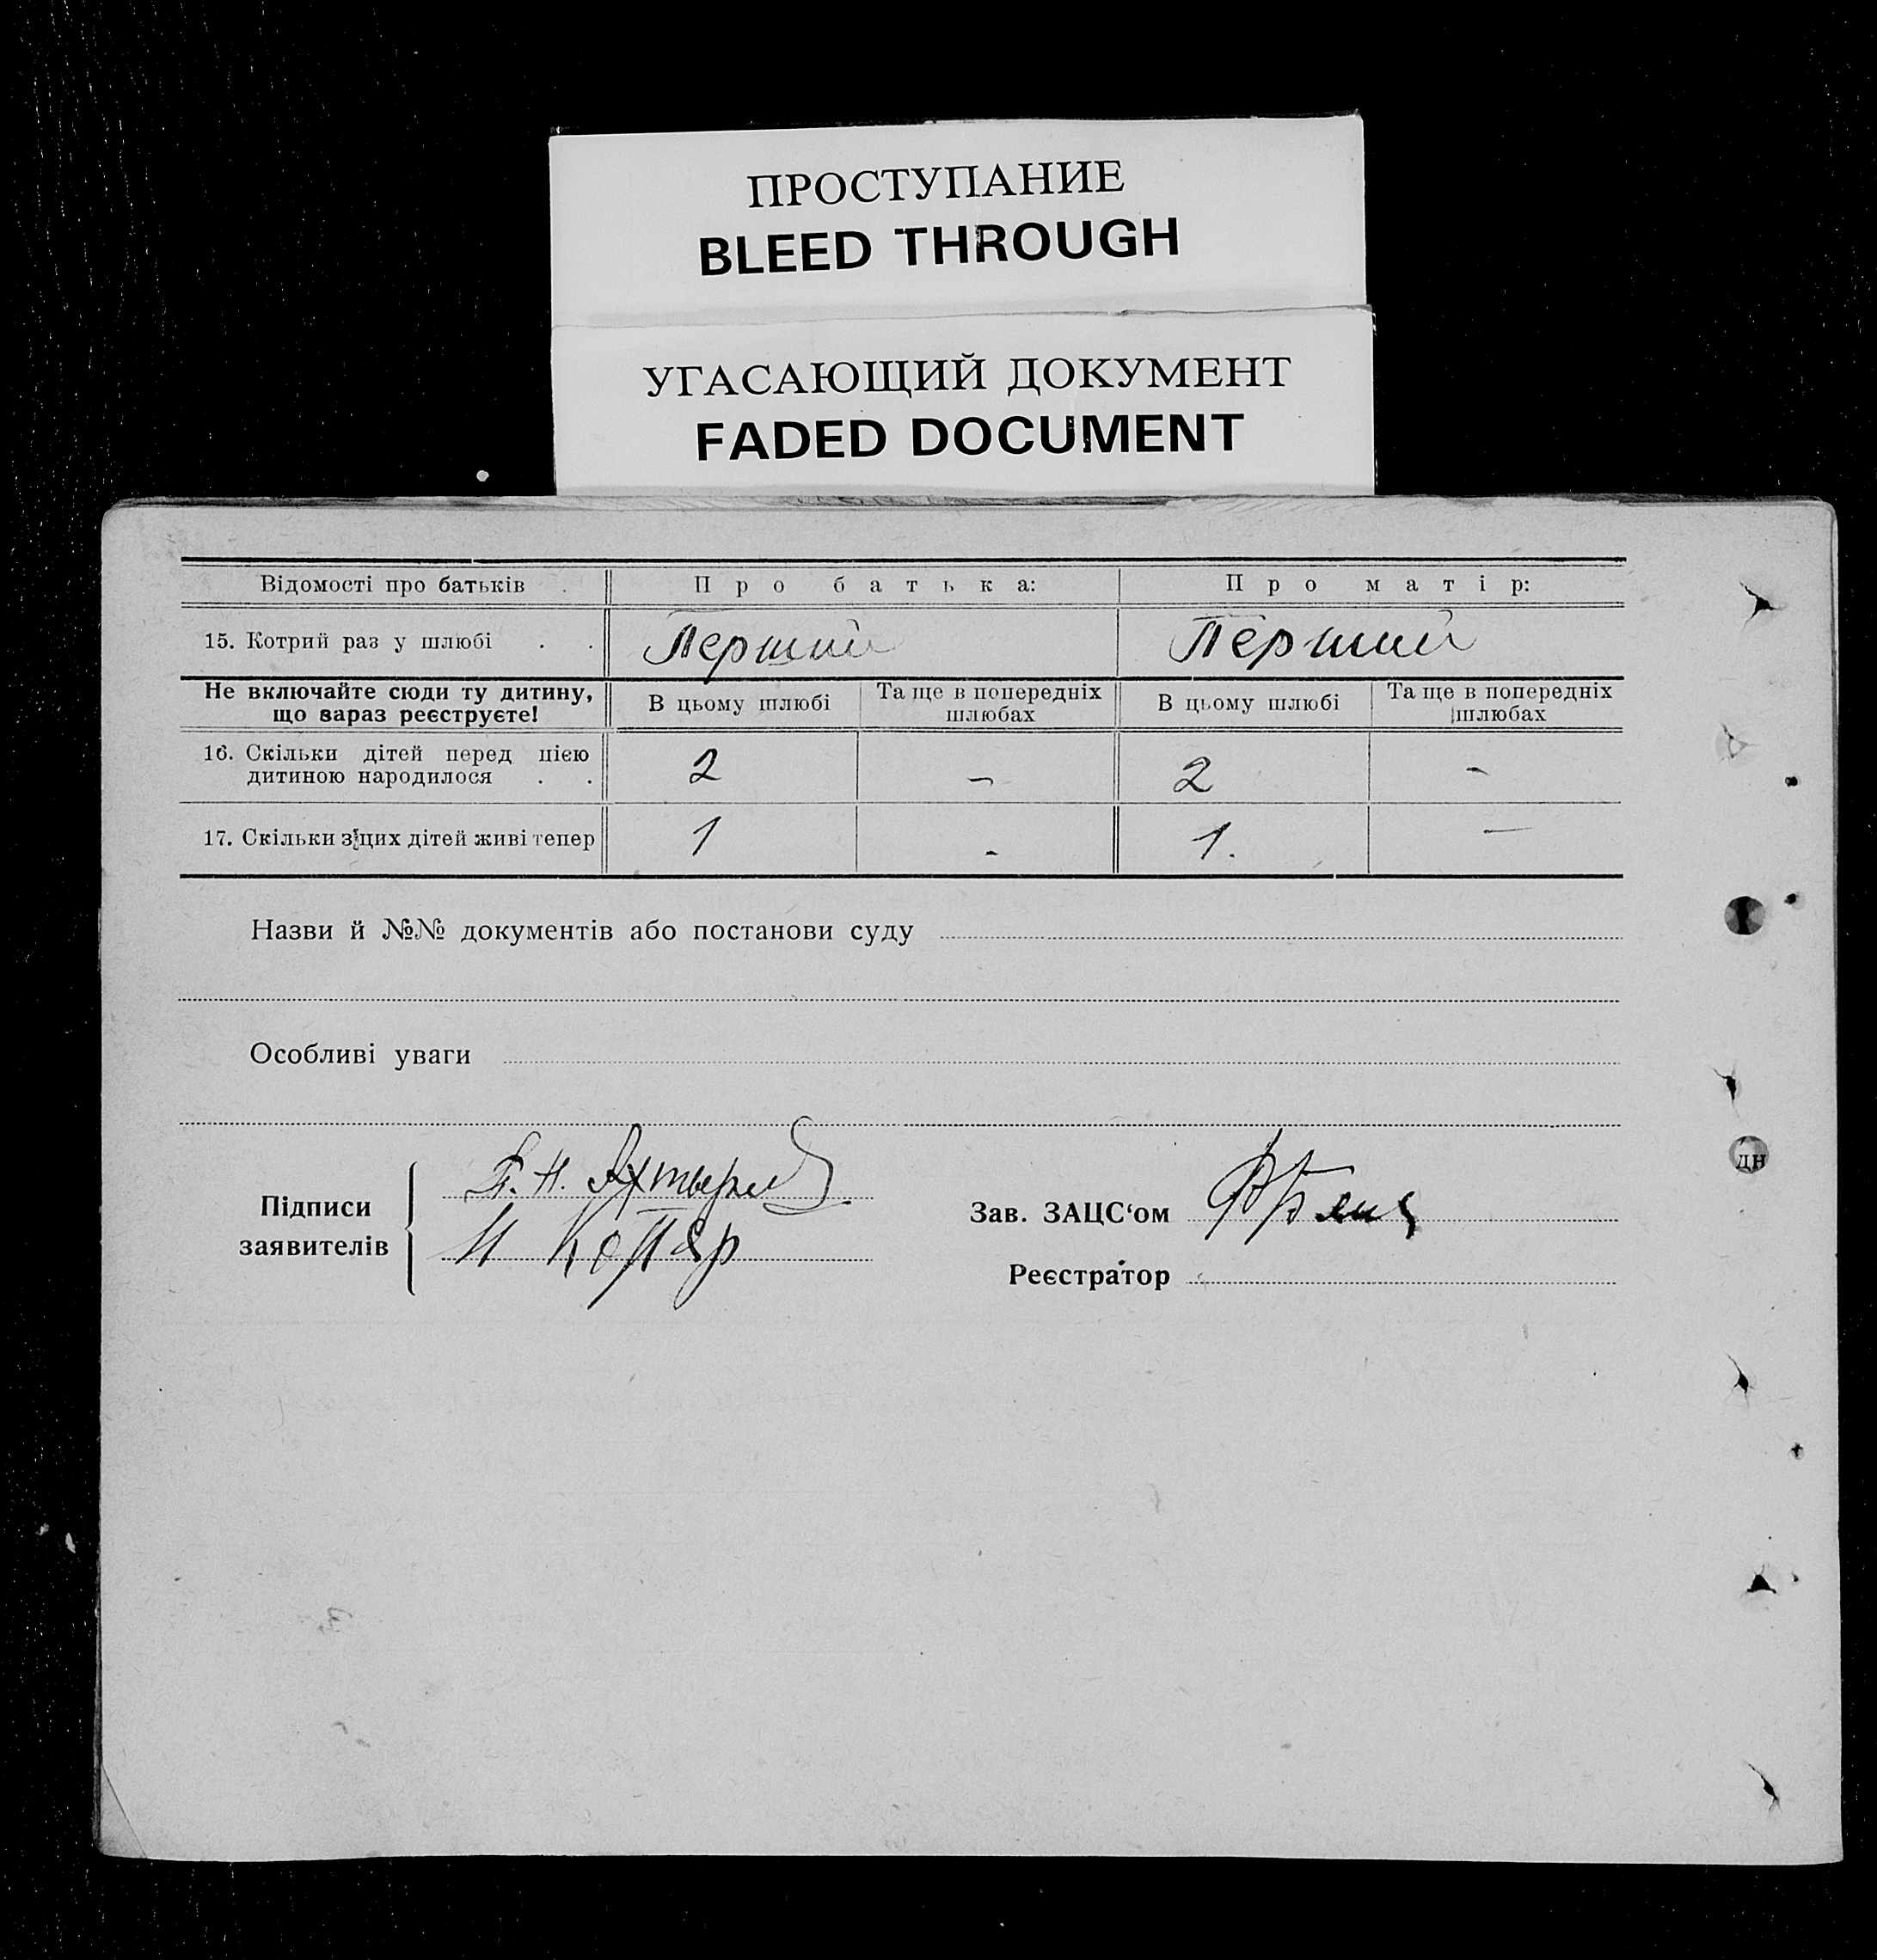 ПРОСТУПАНИЕ
BLEED THROUGH
УГАСАЮЩИЙ ДОКУМЕНТ
FADED DOCUMENT
Відомості про батьків Про батька: Про матір:
15. Котрий раз у шлюбі . . Перший Перший
Не включайте сюди ту дитину, що зараз реєструєте! В цьому шлюбі Та ще в попередніх шлюбах В цьому шлюбі Та ще в попередніх шлюбах
16. Скільки дітей перед цією
дитиною народилося . . 2 – 2 –
17. Скільки з цих дітей живі тепер 1 - 1. —
Назви й №№ документів або постанови суду
Особливі уваги
Підписи
заявителів
Зав. ЗАЦС‘ом
Реєстратор
дн